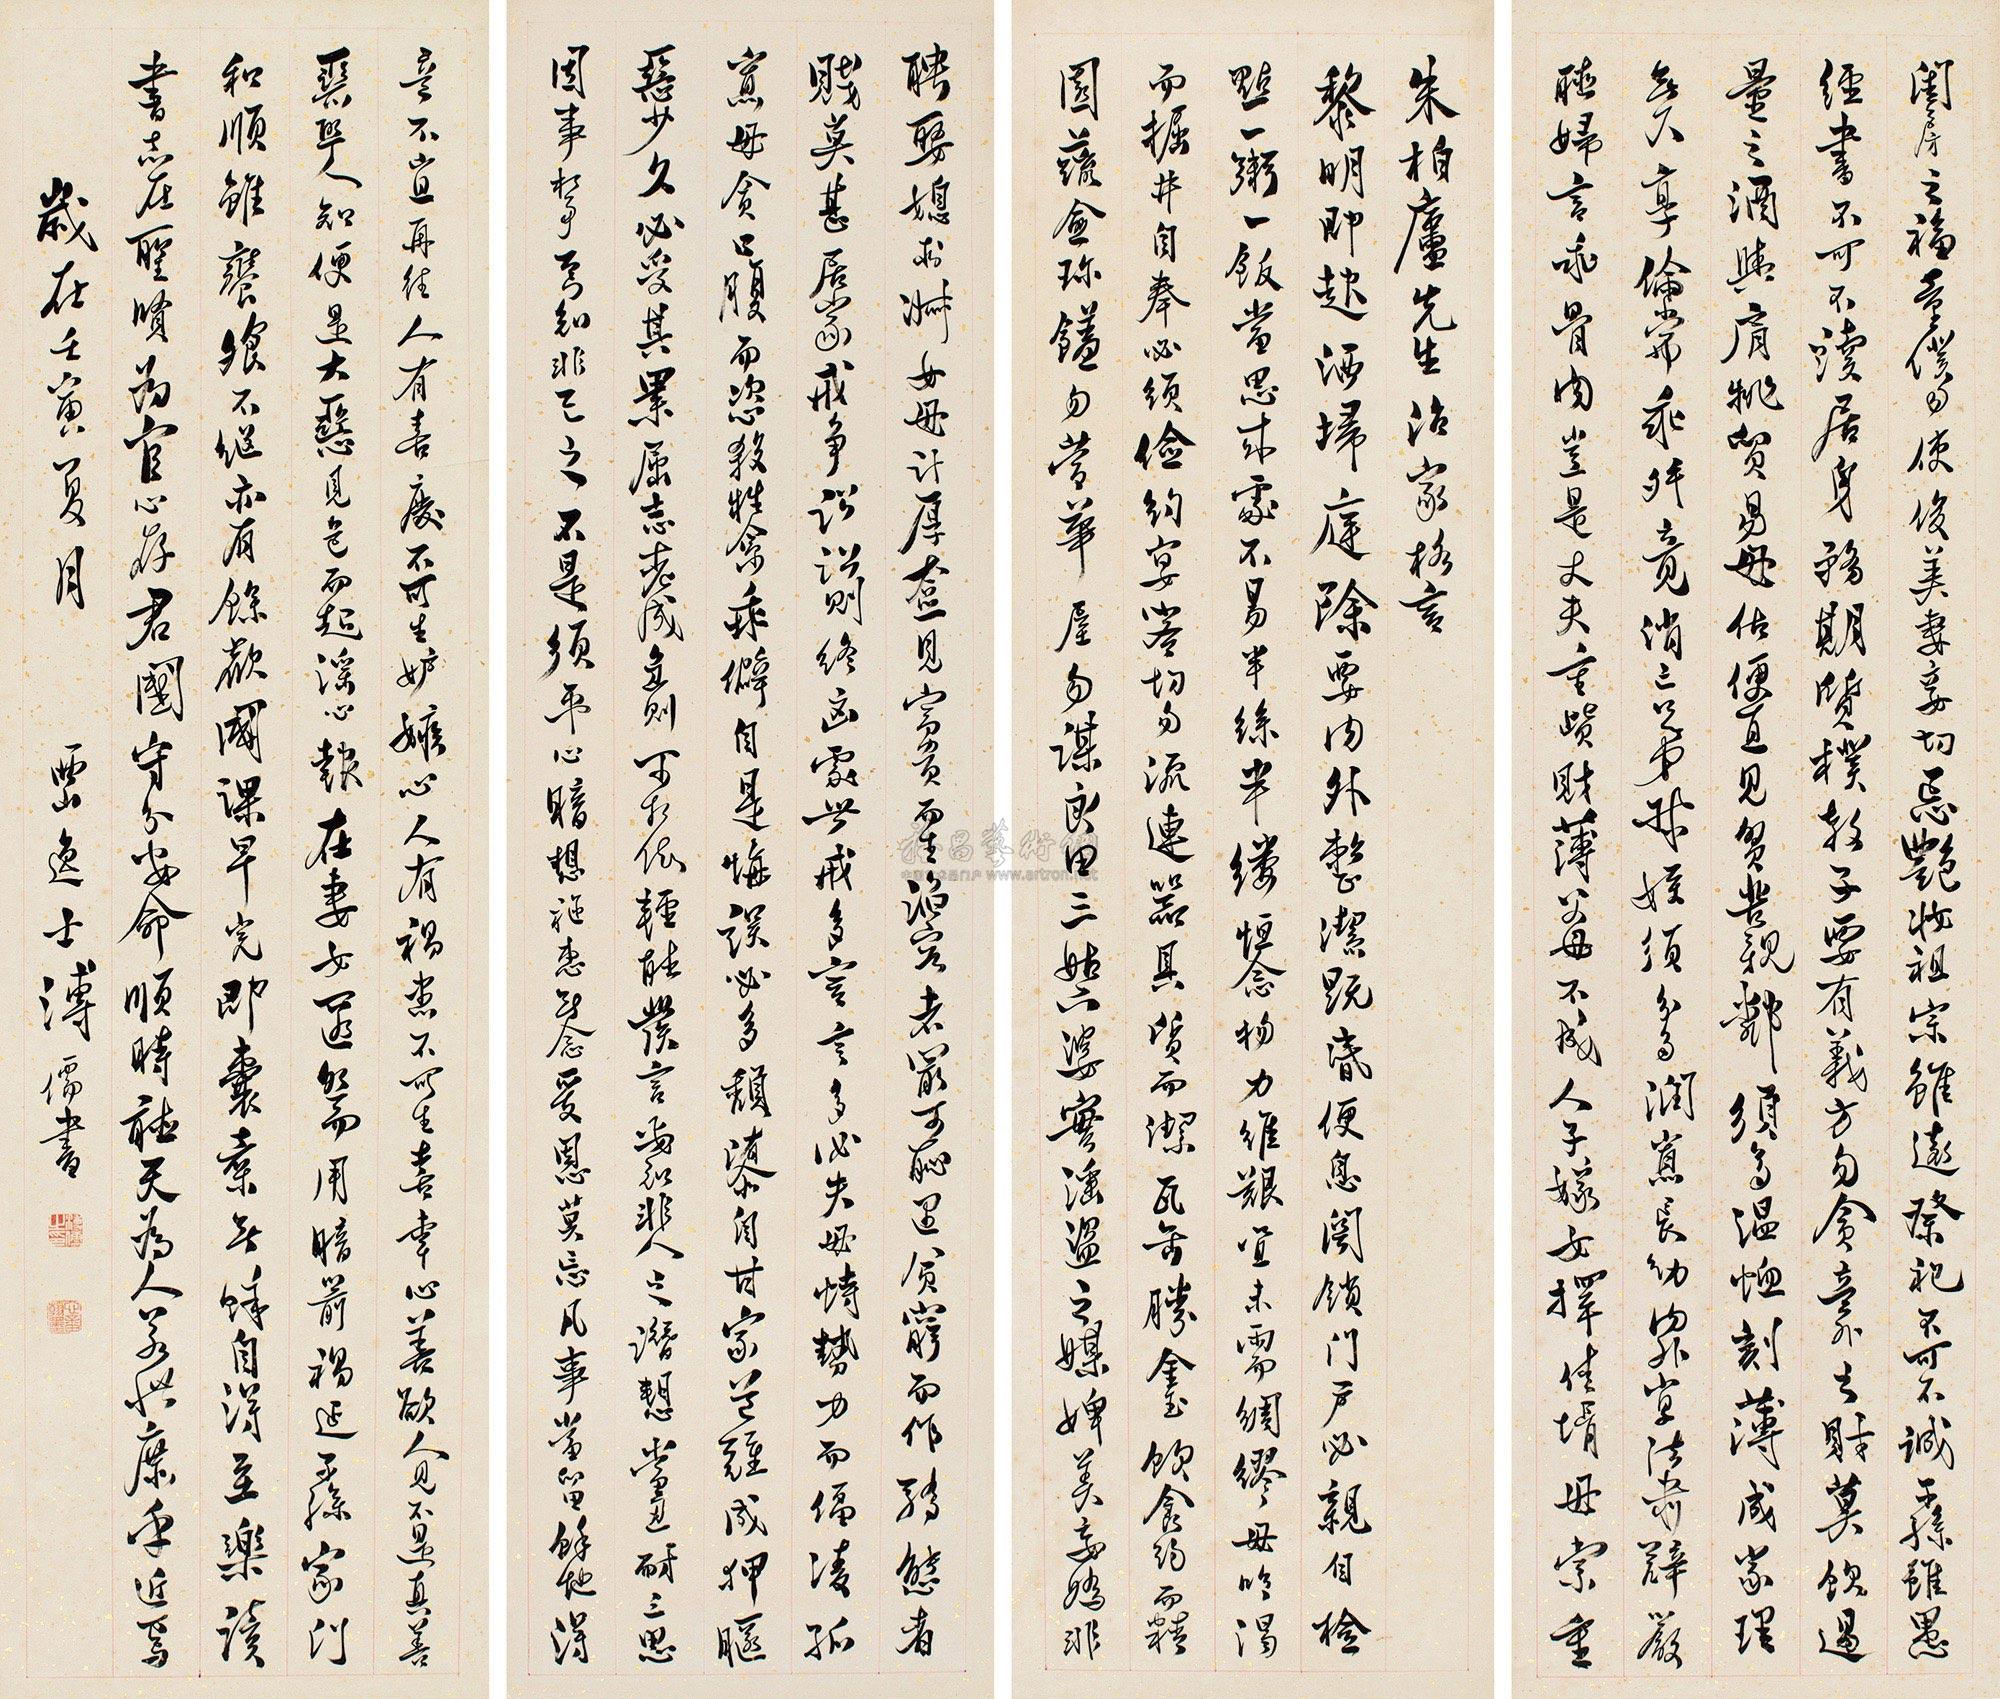 朱柏廬先生治家格言
黎明即起洒掃庭除要内外整潔既昏便息關鎖门户必親自檢
點一粥一飯當思來處不易半絲半縷恒念物力維艱宜未雨而綢繆毋臨渴
而掘井自奉必須儉約宴客切勿流連器具質而潔瓦缶勝金玉飲食約而精
園蔬愈珍饈勿營華屋勿謀良田三姑六婆實淫盜之媒婢美妾嬌非
閨房之福童僕勿使俊美妻妾切忌艷妝祖宗雖遠祭祀不可不誠子孫雖愚
經書不可不讀居身務期質樸教子要有義方勿貪意外之財莫飲過
量之酒與肩挑貿易毋佔便宜見貧苦親鄰須多溫恤刻薄成家理
無久享倫常乖舛立見消亡兄弟叔姪須分多潤寡長幼内外宜法肅辭嚴
聽婦言乖骨肉豈是丈夫重貲財薄父母不成人子嫁女擇佳壻毋索重
聘娶媳求淑女毋計厚奩見富貴而生諂容者最可恥遇貧窮而作驕態者
賤莫甚居家戒争訟訟則終凶處世戒多言言多必失毋恃勢力而偪凌孤
寡毋貪口腹而恣殺牲禽乖僻自是悔誤必多頹惰自甘家道難成狎暱
惡少久必受其累屈志老成急則可相依輕聽發言安知非人之譖愬當忍耐三思
因事相爭焉知非己之不是須平心暗想施惠無念受恩莫忘凡事當留餘地得
意不宜再往人有喜慶不可生妒嫉心人有禍患不可生喜幸心善欲人見不是真善
惡恐人知便是大惡見色而起淫心報在妻女匿怨而用暗箭禍延子孫家门
和順雖饔飧不繼亦有餘歡國課早完即囊橐無餘自得至樂讀
書志在聖賢為官心存君國守分安命順時聽天為人若此庶乎近焉
歲在壬寅夏月 西山逸士溥儒書
雅昌藝術網
www.artron.net